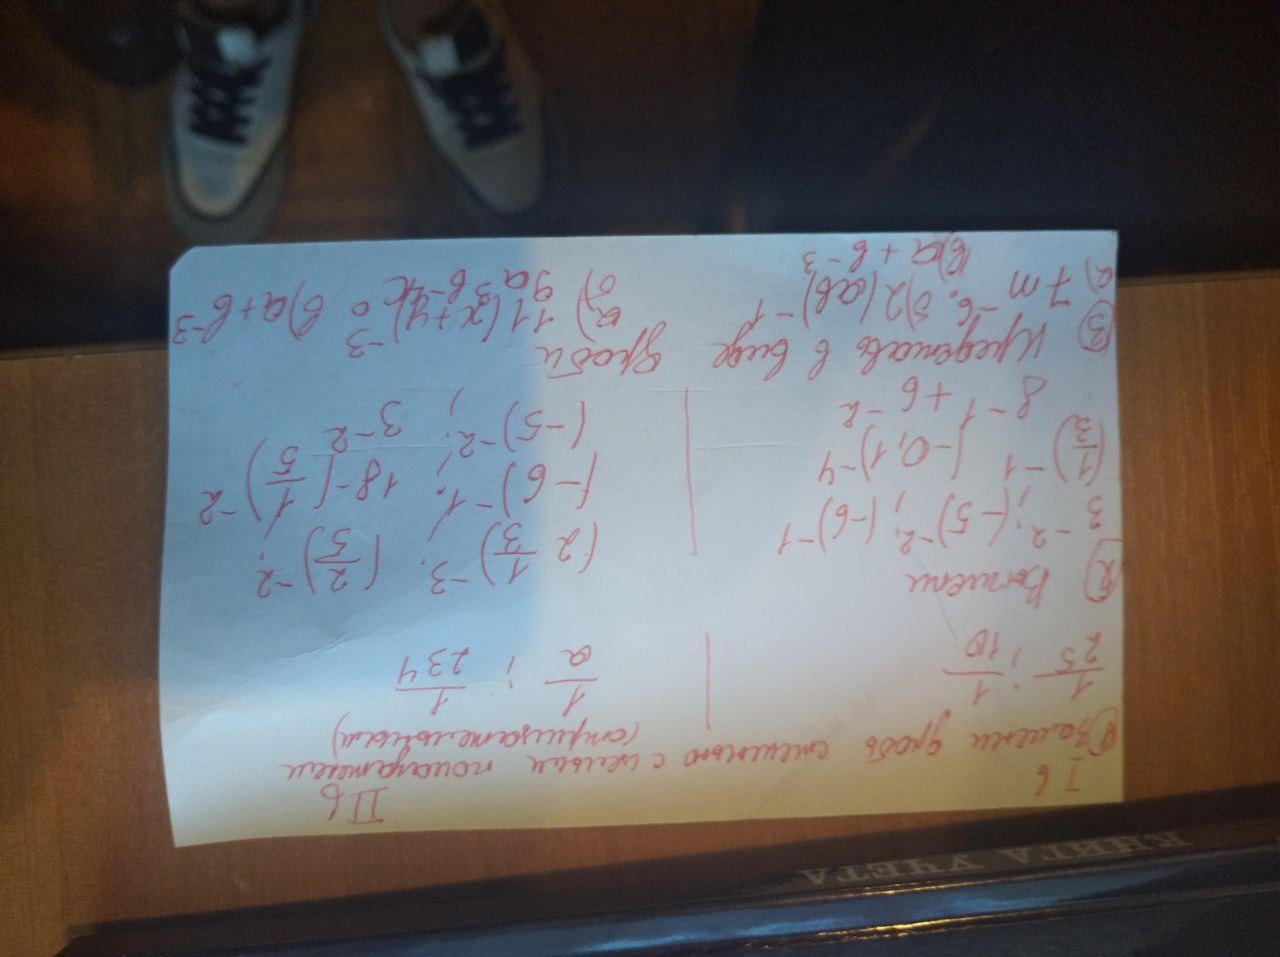 КНИГА УЧЕТА
I в II в
① Замени дробь степенью с целым показателем
(отрицательным)
1/25 ; 1/10 1/a ; 1/234
② Вычисли
3⁻²; (-5)⁻²; (-6)⁻¹ (2 1/3)⁻³; (2/5)⁻²;
(1/3)⁻¹ (-0,1)⁻⁴ (-6)⁻¹; 18-(1/5)⁻²
8⁻¹ + 6⁻² (-5)⁻²; 3⁻²
③ Представь в виде дроби
а) 7m⁻⁶; б) 2(ab)⁻¹ а) 11(x+y)⁻³ в) a+b⁻³
в) a+b⁻³ б)